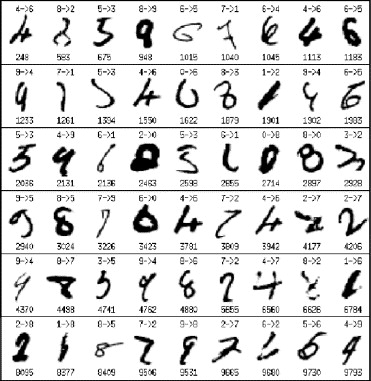 4->6 8->2 5->3 8->9 6->5 7->1 6->4 4->6 6->5
248 583 675 948 1015 1040 1045 1113 1183
9->4 7->1 5->3 4->0 0->6 8->3 1->2 9->4 6->5
1233 1261 1394 1550 1622 1879 1901 1902 1983
5->3 4->9 6->1 2->0 5->3 6->1 0->8 8->0 3->2
2036 2131 2136 2463 2598 2655 2714 2897 2928
9->5 8->5 7->9 6->0 4->6 7->2 4->6 2->7 2->7
2940 3024 3226 3423 3781 3809 3942 4177 4206
9->4 8->7 3->5 9->4 8->6 7->2 4->7 8->2 1->6
4370 4498 4741 4762 4880 5655 6560 6626 6784
2->8 1->8 8->5 7->2 9->8 2->7 6->2 5->6 4->9
8095 8377 8409 9506 9531 9665 9680 9730 9793